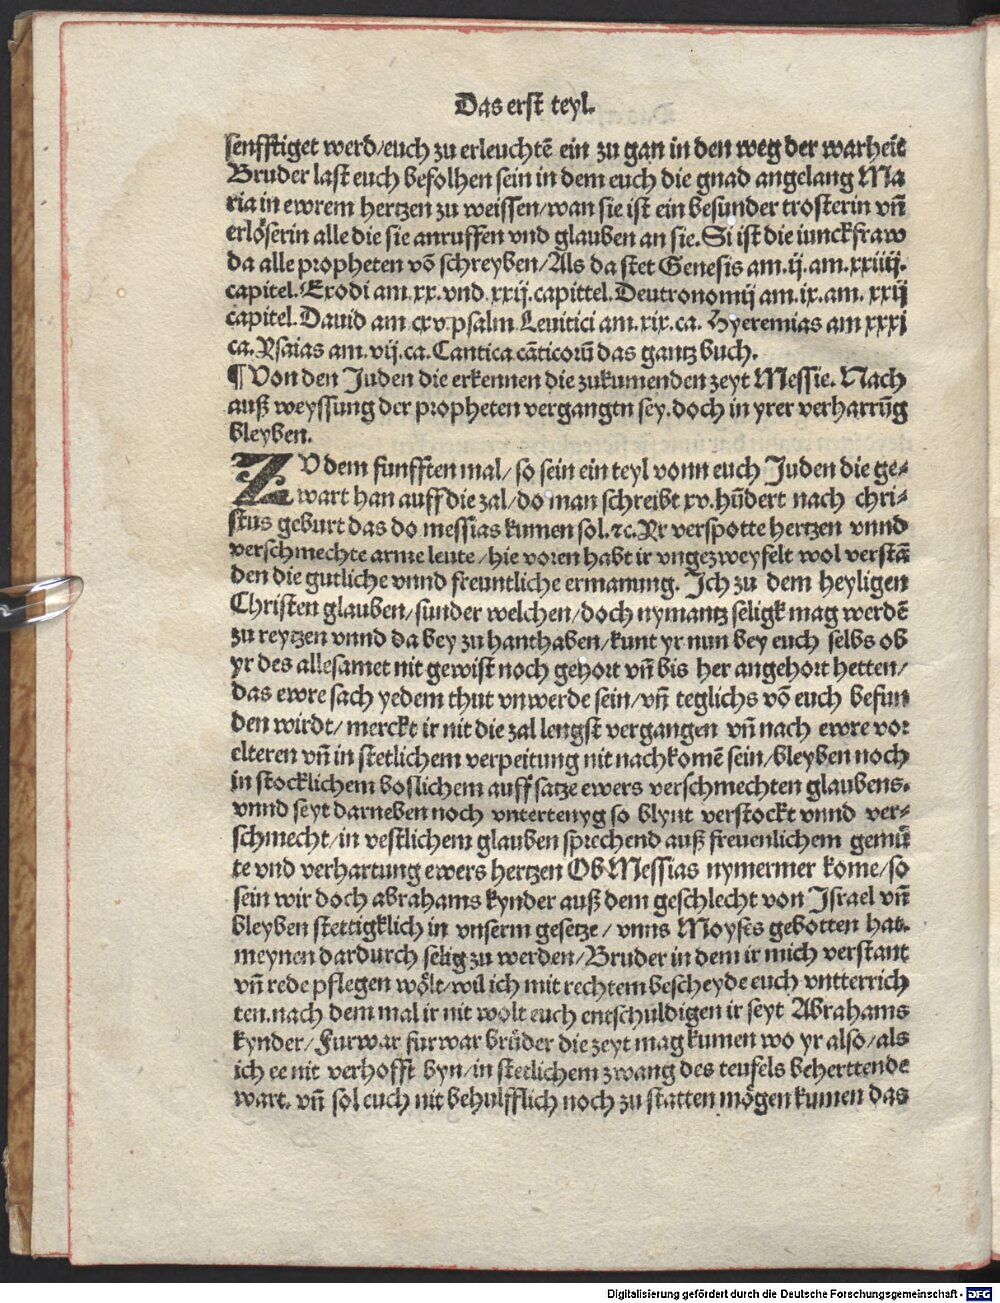 Das erst teyl.
senfftiget werd/euch zu erleuchtē ein zu gan in den weg der warheit
Bruder last euch befolhen sein in dem euch die gnad angelang Ma
ria in ewrem hertzen zu weissen/wan sie ist ein besunder trosterin vñ
erlöserin alle die sie anruffen vnd glauben an sie. Si ist die iunckfraw
da alle propheten vō schreyben/Als da stet Genesis am.ij.am.xxiiij.
capitel. Exodi am.xx.vnd.xxij.capittel. Deutronomij am.ix.am.xxij
capitel. Dauid am cxv.psalm Leuitici am.xix.ca. Hyeremias am xxxj
ca. Ysaias am.vij.ca. Cantica cāticorū das gantz buch.
¶ Von den Juden die erkennen die zukumenden zeyt Messie. Nach
auß weyssung der propheten vergangtn sey.doch in yrer verharrūg
bleyben.
ZV dem funfften mal/so sein ein teyl vonn euch Juden die ge⸗
wart han auff die zal/do man schreibt xv.hūdert nach chri⸗
stus geburt das do messias kumen sol.⁊c. Yr verspotte hertzen vnnd
verschmechte arme leute/hie voren habt ir vngezweyfelt wol verstā
den die gutliche vnnd freuntliche ermanung. Ich zu dem heyligen
Christen glauben/sunder welchen/doch nymantz seligk mag werdē
zu reytzen vnnd da bey zu hanthaben/kunt yr nun bey euch selbs ob
yr des allesamet nit gewist noch gehort vñ bis her angehort hetten/
das ewre sach yedem thut vnwerde sein/vñ teglichs vō euch befun
den wirdt/merckt ir nit die zal lengst vergangen vñ nach ewre vor
elteren vñ in stetlichem verpeitung nit nachkomē sein/bleyben noch
in stocklichem boslichem auff satze ewers verschmechten glaubens.
vnnd seyt darneben noch vntertenyg so blynt verstockt vnnd ver⸗
schmecht/in vestlichem glauben sprechend auß freuenlichem gemü
te vnd verhartung ewers hertzen Ob Messias nymermer kome/so
sein wir doch abrahams kynder auß dem geschlecht von Israel vñ
bleyben stettigklich in vnserm gesetze/vnns Moyses gebotten hat.
meynen dardurch selig zu werden/Bruder in dem ir mich verstant
vñ rede pflegen wölt/wil ich mit rechtem bescheyde euch vntterrich
ten.nach dem mal ir nit wolt euch entschuldigen ir seyt Abrahams
kynder/Furwar furwar brüder die zeyt mag kumen wo yr also/als
ich ee nit verhofft byn/in stetlichem zwang des teufels beherttende
wart. vñ sol euch nit behulfflich noch zu statten mögen kumen das
Digitalisierung gefördert durch die Deutsche Forschungsgemeinschaft - DFG